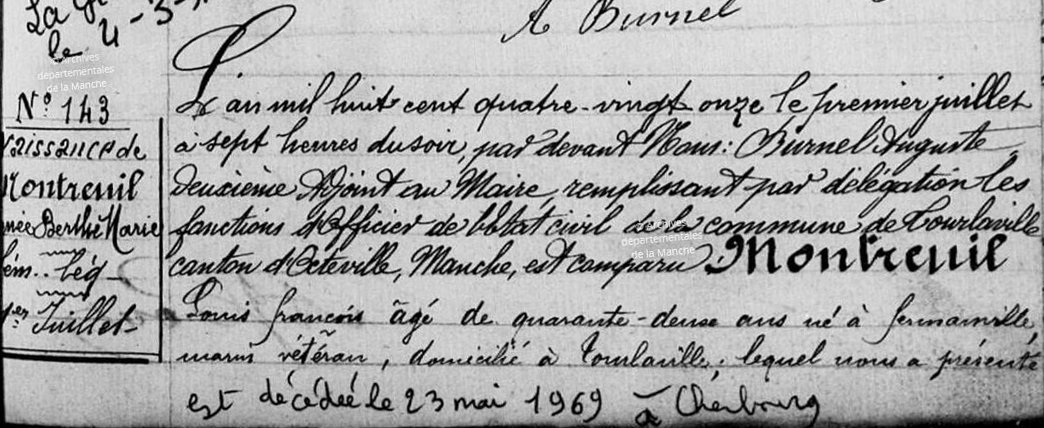 le 4-3-
A Burnel
© Archives
départementales
de la Manche
N° 143
Naissance de
Montreuil
née Berthe Marie
fém.. Lég
1er Juillet
L'an mil huit cent quatre-vingt onze le premier juillet
à sept heures du soir, par devant Nous: Burnel Auguste
deuxième Adjoint au Maire, remplissant par délégation les
fonctions d'Officier de l'Etat civil de la commune de Tourlaville
canton d'Octeville, Manche, est comparu Montreuil
Louis françois âgé de quarante-deuse ans né à fermanville,
marin vétéran, domicilié à Tourlaville; lequel nous a présenté
est décédée le 23 mai 1969 à Cherbourg
© Archives
départementales
de la Manche